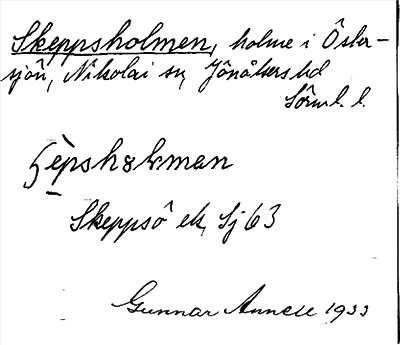 Skeppsholmen, holme i Öster-
sjön, Nikolai sn, Jönåkers hd
Sörml. l.
Skeppsö ek, Sj 63
Gunnar Annell 1933